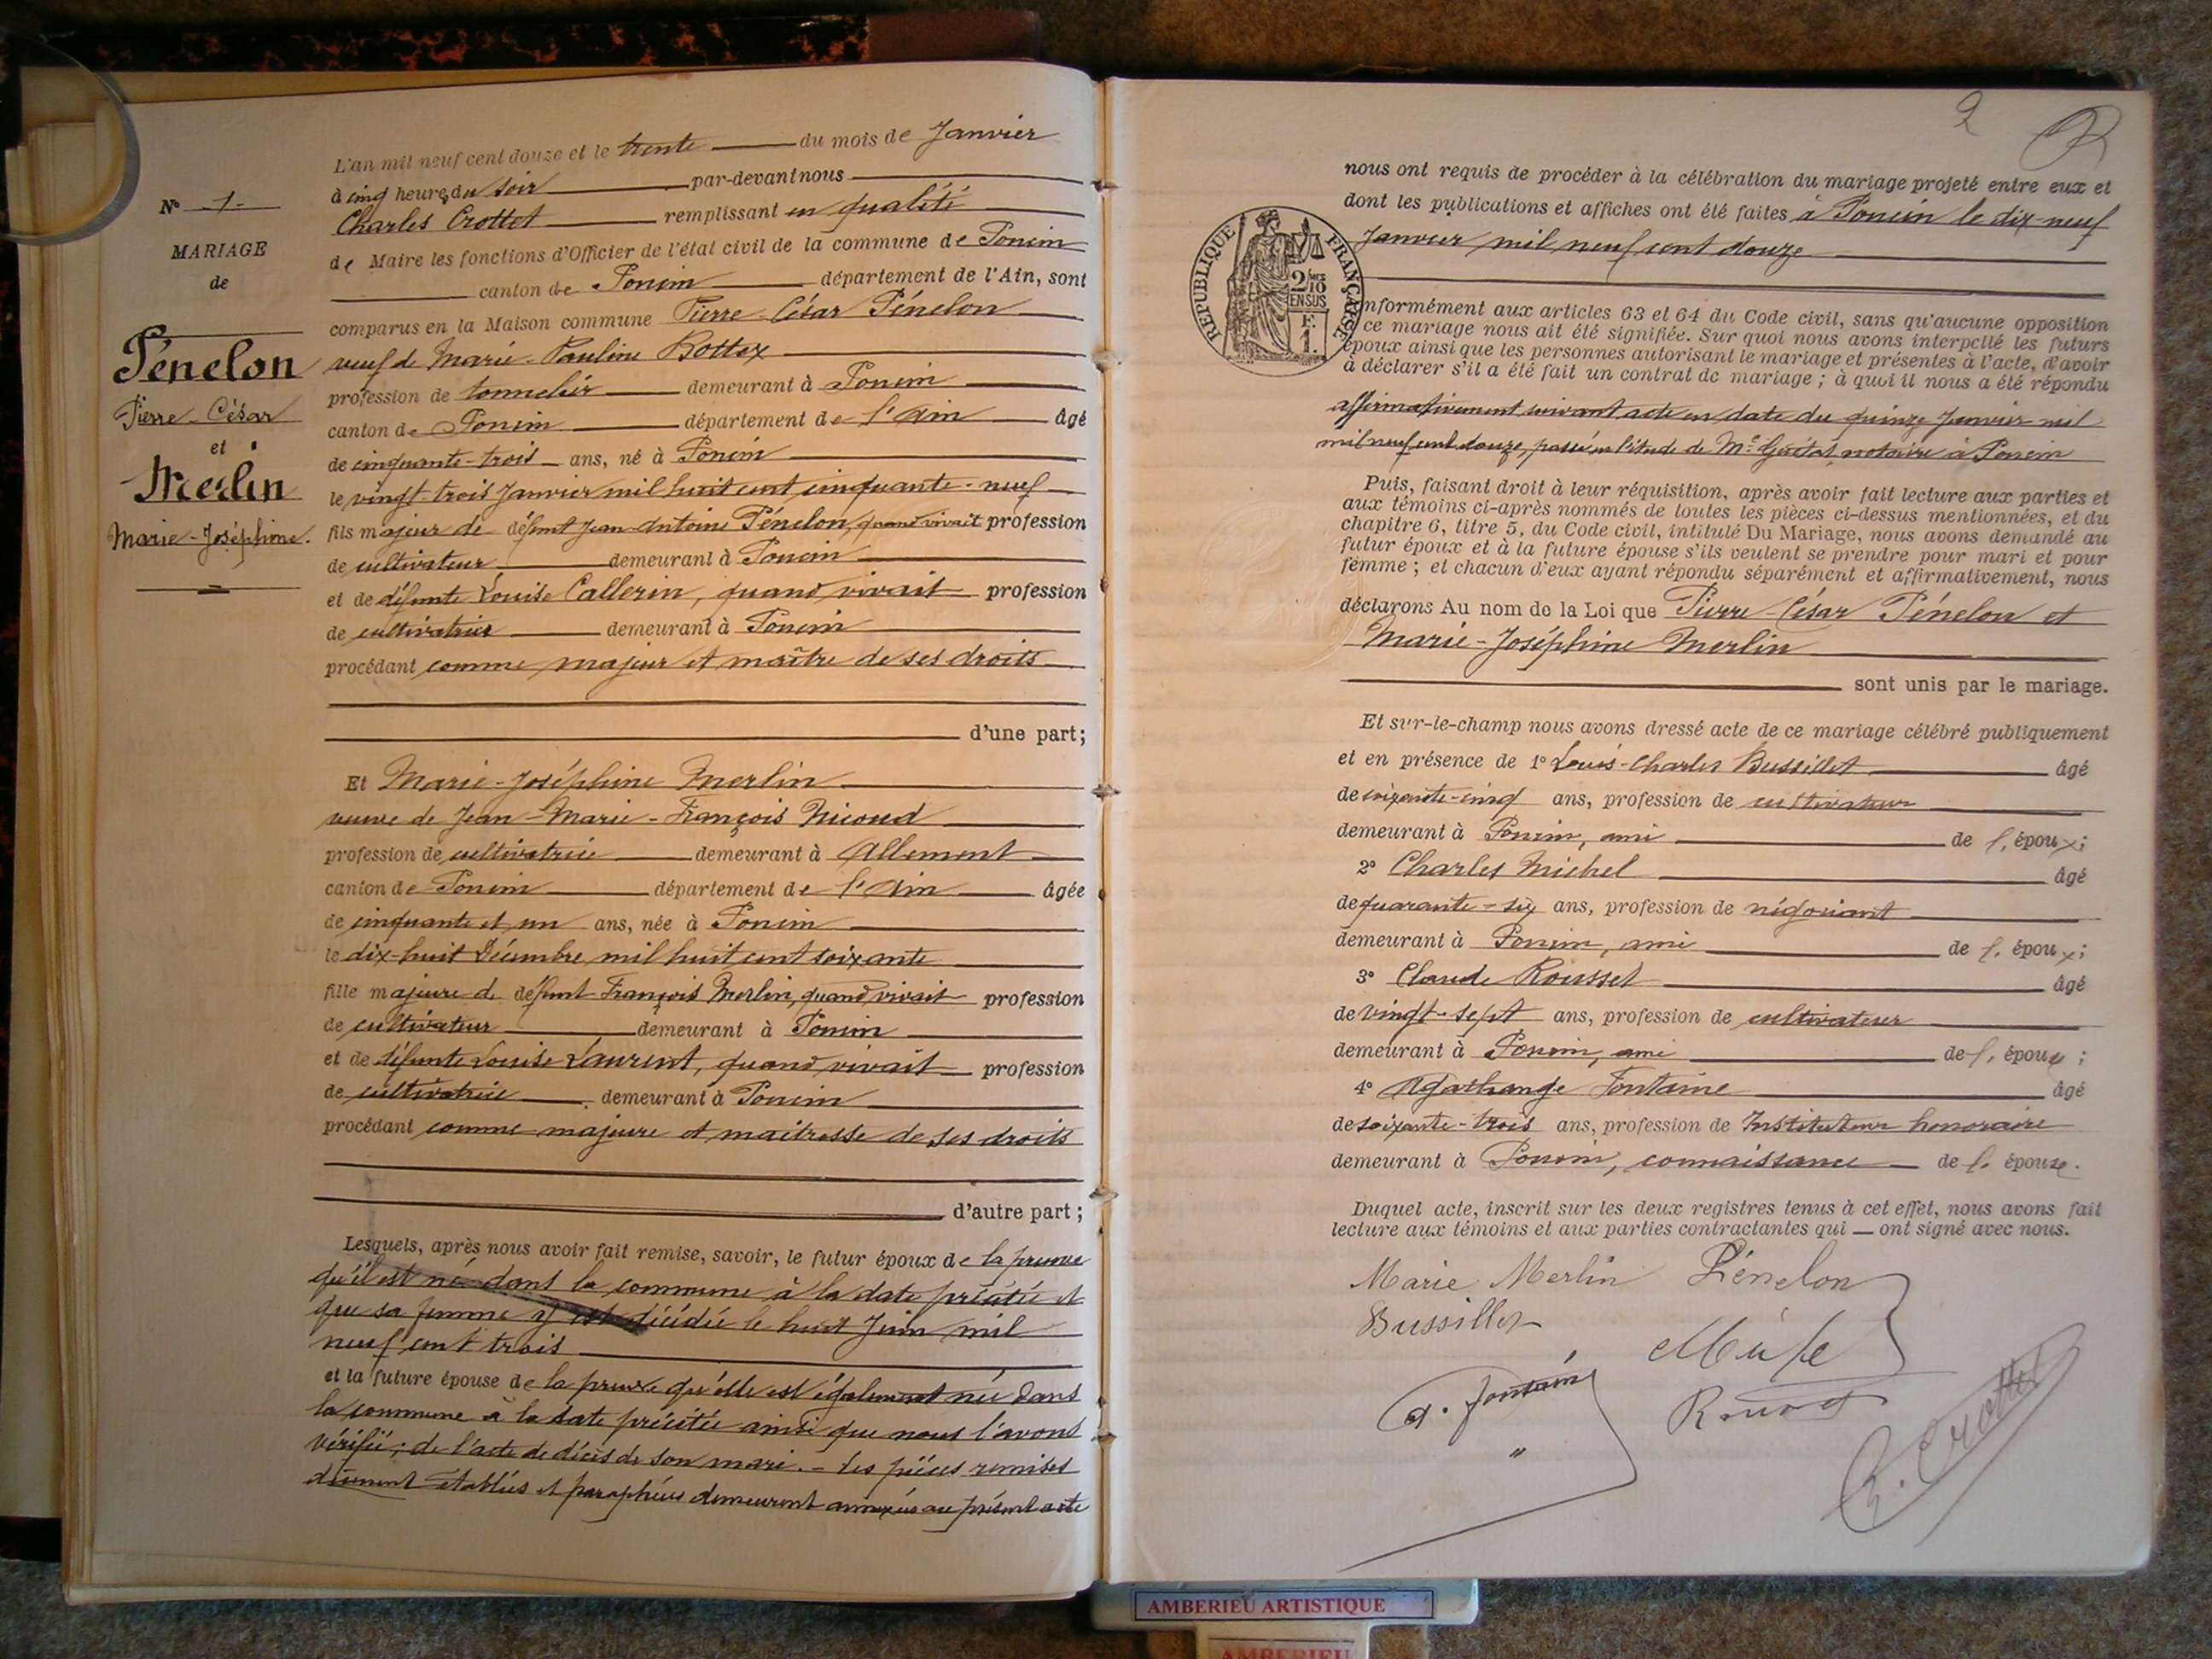 L'an mil neuf cent douze et le trente du mois de Janvier
à cinq heures du soir par-devant nous
Charles Crottet remplissant en qualité
de Maire les fonctions d'Officier de l'état civil de la commune de Poncin
canton de Poncin département de l'Ain, sont
comparus en la Maison commune Pierre-César Pénelon
veuf de Marie-Pauline Bottex
profession de tonnelier demeurant à Poncin
canton de Poncin département de l'Ain âgé
de cinquante-trois ans, né à Poncin
le vingt-trois Janvier mil huit cent cinquante-neuf
fils majeur de défunt Jean-Antoine Pénelon, quand vivait profession
de cultivateur demeurant à Poncin
et de défunte Louise Callerin, quand vivait profession
de cultivatrice demeurant à Poncin
procédant comme majeur et maître de ses droits
d'une part;
N° 1
MARIAGE
de
Pénelon
Pierre-César
et
Merlin
Marie-Joséphine.
Et Marie-Joséphine Merlin
veuve de Jean-Marie-François Nicoud
profession de cultivatrice demeurant à Allement
canton de Poncin département de l'Ain âgée
de cinquante et un ans, née à Poncin
le dix-huit Décembre mil huit cent soixante
fille majeure de défunt François Merlin, quand vivait profession
de cultivateur demeurant à Poncin
et de défunte Louise Laurent, quand vivait profession
de cultivatrice demeurant à Poncin
procédant comme majeure et maitresse de ses droits
d'autre part;
Lesquels, après nous avoir fait remise, savoir, le futur époux de la preuve
qu'il est né dans la commune à la date précitée et
que sa femme y est décédée le huit Juin mil
neuf cent trois
et la future épouse de la preuve qu'elle est également née dans
la commune à la date précitée ainsi que nous l'avons
vérifié; de l'acte de décès de son mari. - Les pièces remises
dûment établies et paraphées demeurent annexées au présent acte
2
nous ont requis de procéder à la célébration du mariage projeté entre eux et
dont les publications et affiches ont été faites à Poncin le dix-neuf
Janvier mil neuf cent douze
REPUBLIQUE FRANÇAISE
2/10 EN SUS
F.
1.
nformément aux articles 63 et 64 du Code civil, sans qu'aucune opposition
ce mariage nous ait été signifiée. Sur quoi nous avons interpellé les futurs
époux ainsi que les personnes autorisant le mariage et présentes à l'acte, d'avoir
à déclarer s'il a été fait un contrat de mariage; à quoi il nous a été répondu
affirmativement suivant acte en date du quinze Janvier mil
mil neuf cent douze, passé en l'étude de Me notaire à Poncin
Puis, faisant droit à leur réquisition, après avoir fait lecture aux parties et
aux témoins ci-après nommés de toutes les pièces ci-dessus mentionnées, et du
chapitre 6, titre 5, du Code civil, intitulé Du Mariage, nous avons demandé au
futur époux et à la future épouse s'ils veulent se prendre pour mari et pour
femme; et chacun d'eux ayant répondu séparément et affirmativement, nous
déclarons Au nom de la Loi que Pierre-César Pénelon et
Marie-Joséphine Merlin
sont unis par le mariage.
Et sur-le-champ nous avons dressé acte de ce mariage célébré publiquement
et en présence de 1° Louis-Charles Bussillet âgé
de soixante-cinq ans, profession de cultivateur
demeurant à Poncin, ami de l'époux;
2° Charles Michel âgé
de quarante-six ans, profession de négociant
demeurant à Poncin, ami de l'époux;
3° Claude Rousset âgé
de vingt-sept ans, profession de cultivateur
demeurant à Poncin, ami de l'épouse;
4° Agathange Fontaine âgé
de soixante-trois ans, profession de Instituteur honoraire
demeurant à Poncin, connaissance de l'épouse.
Duquel acte, inscrit sur les deux registres tenus à cet effet, nous avons fait
lecture aux témoins et aux parties contractantes qui — ont signé avec nous.
Marie Merlin Pénelon
Bussillet
A. Fontaine
C. Crottet
AMBERIEU ARTISTIQUE
AMBERIEU